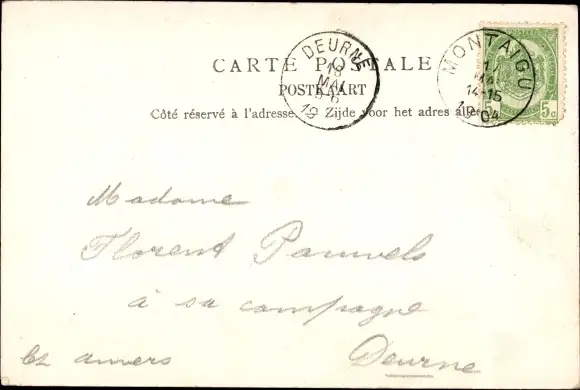 CARTE POSTALE
POSTKAART
Côté réservé à l'adresse. Zijde voor het adres alleen
DEURNE
18
MAI
5-6
19
MONTAIGU
MAI
14-15
1904
5c 5c
Madame
Florent Pauwels
à sa campagne
lez anvers Deurne